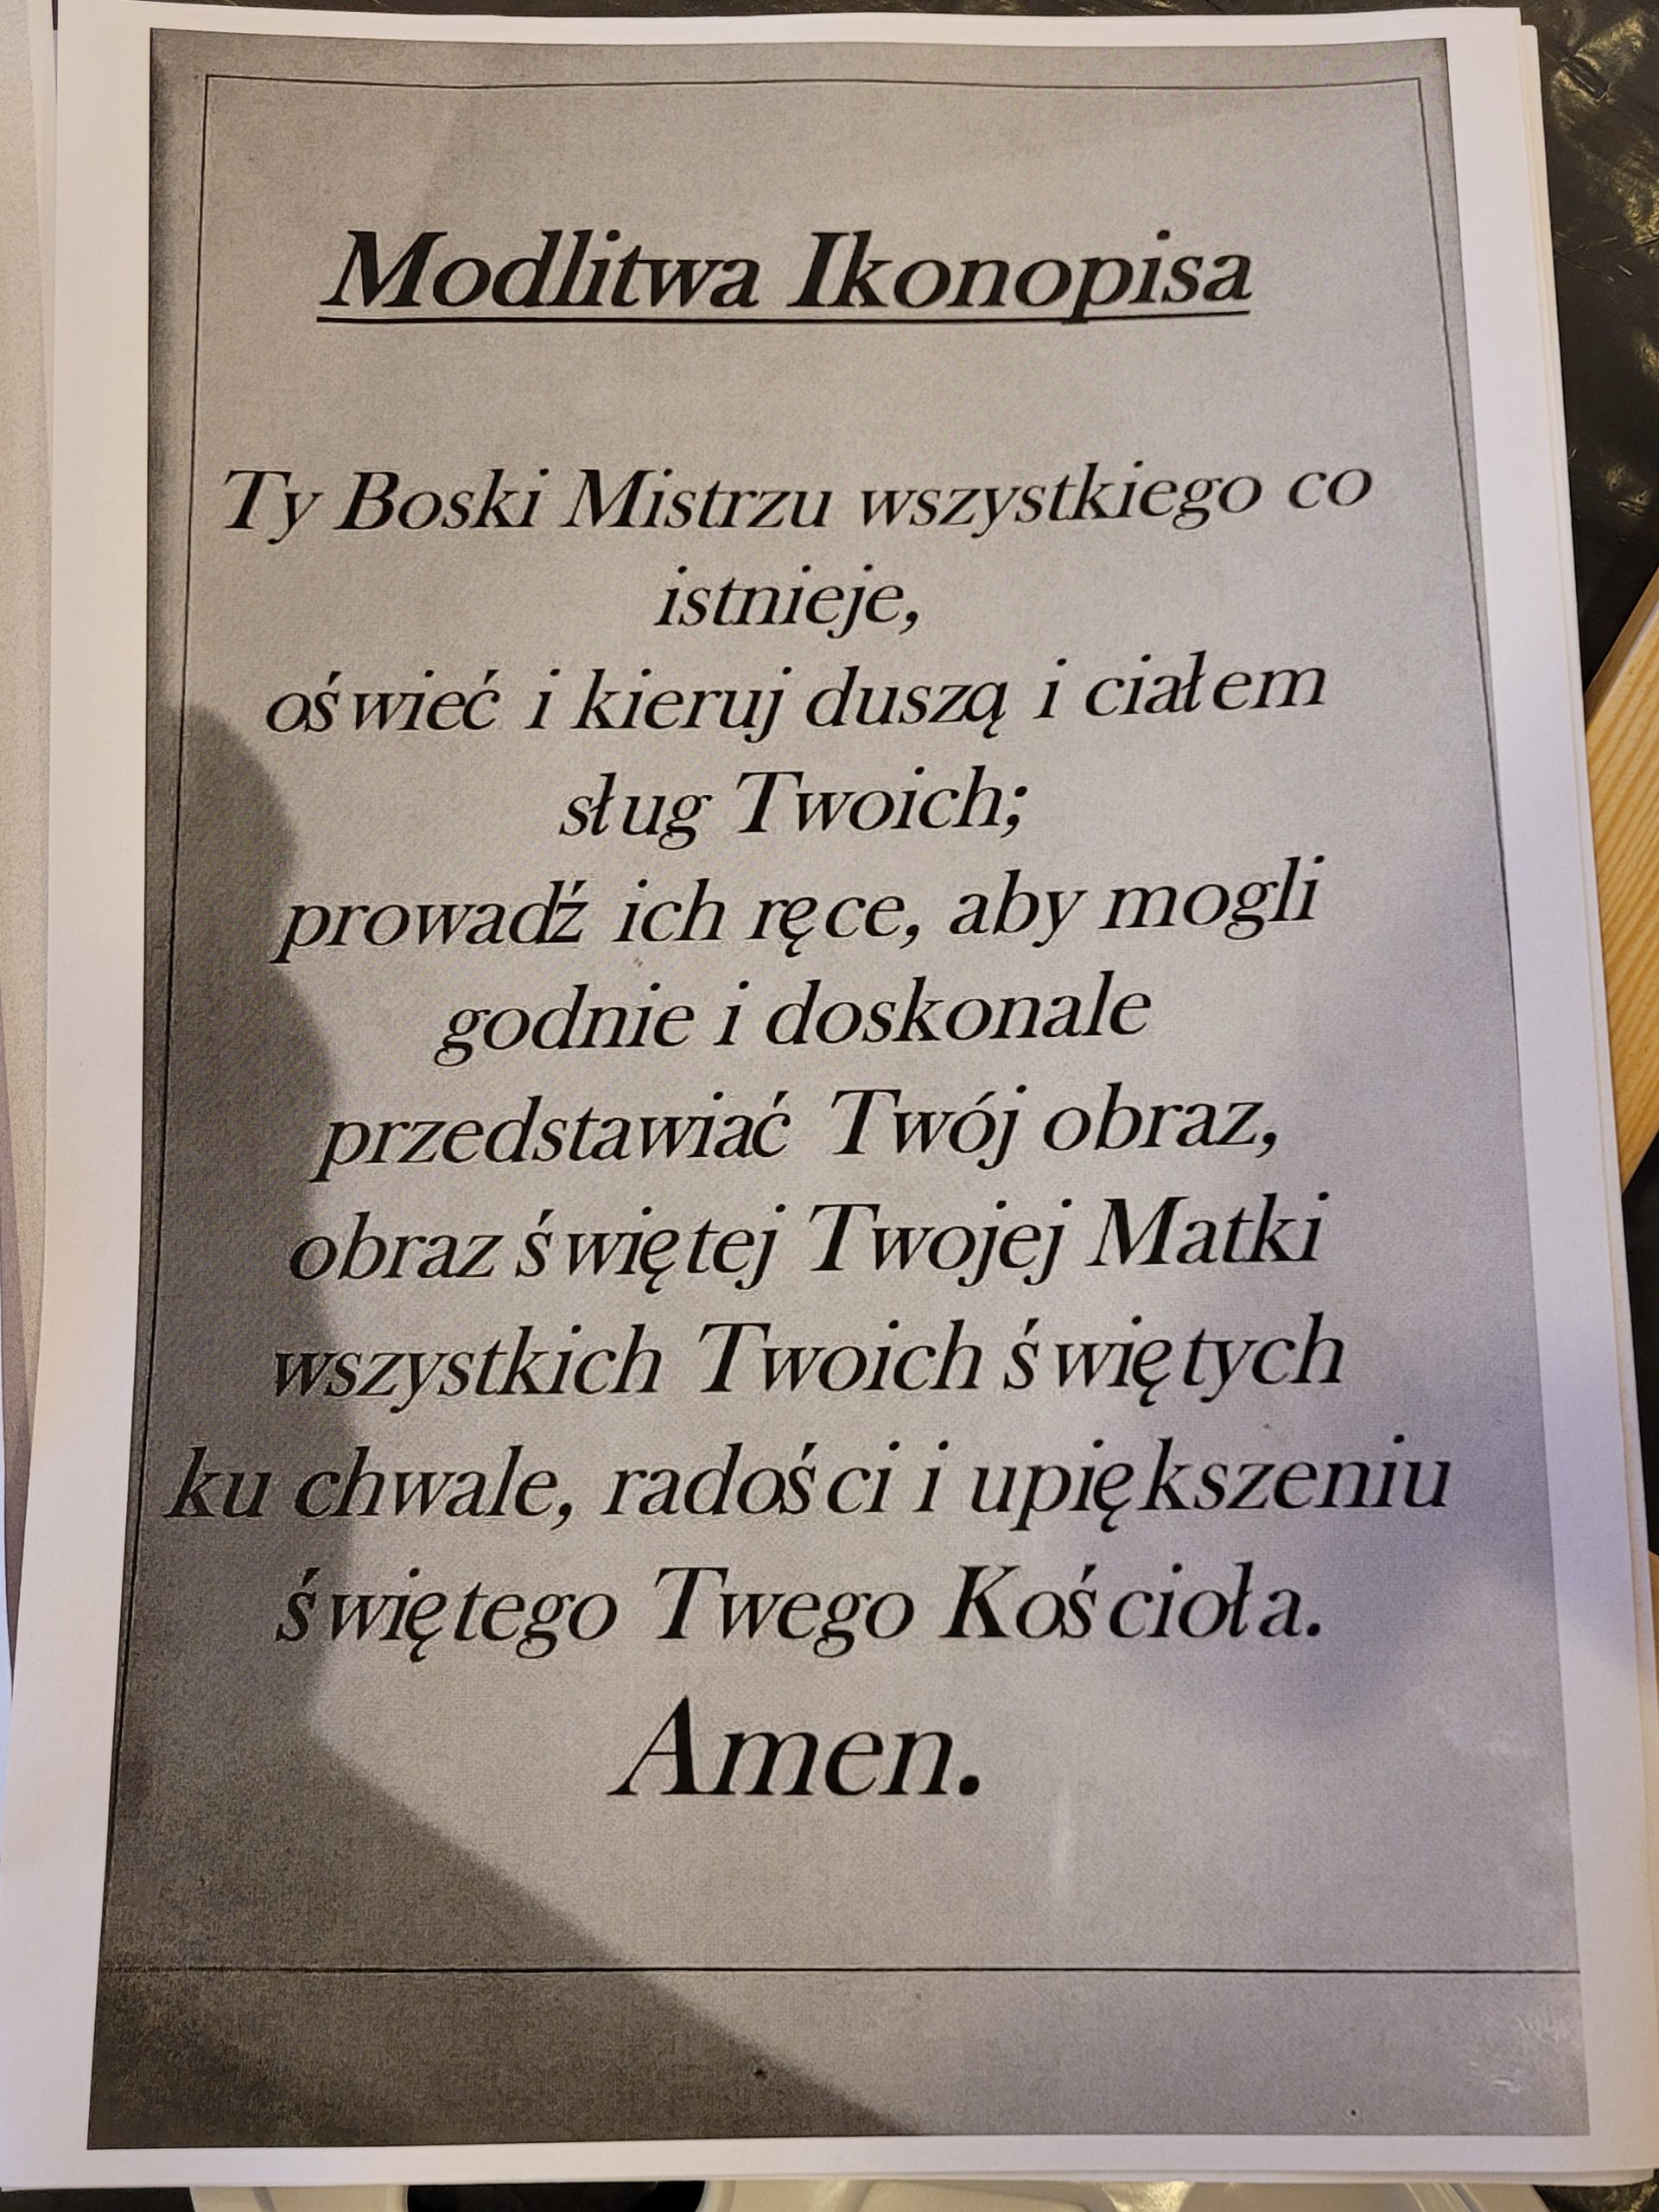 Modlitwa Ikonopisa
Ty Boski Mistrzu wszystkiego co
istnieje,
oświeć i kieruj duszą i ciałem
sług Twoich;
prowadź ich ręce, aby mogli
godnie i doskonale
przedstawiać Twój obraz,
obraz świętej Twojej Matki
wszystkich Twoich świętych
ku chwale, radości i upiększeniu
świętego Twego Kościoła.
Amen.